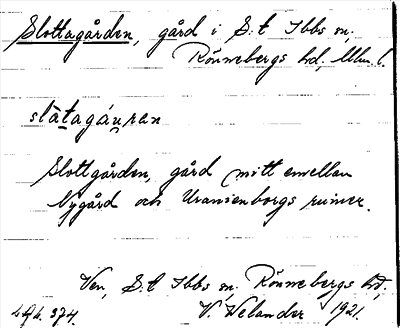 Slottagården, gård i S:t Ibbs sn,
Rönnebergs hd, Mlm. l.
slàtagáuran
Slottgården, gård mitt emellan
Nygård och Uranienborgs ruiner.
Ven, S:t Ibbs sn, Rönnebergs hd,
374. V. Welander 1921.